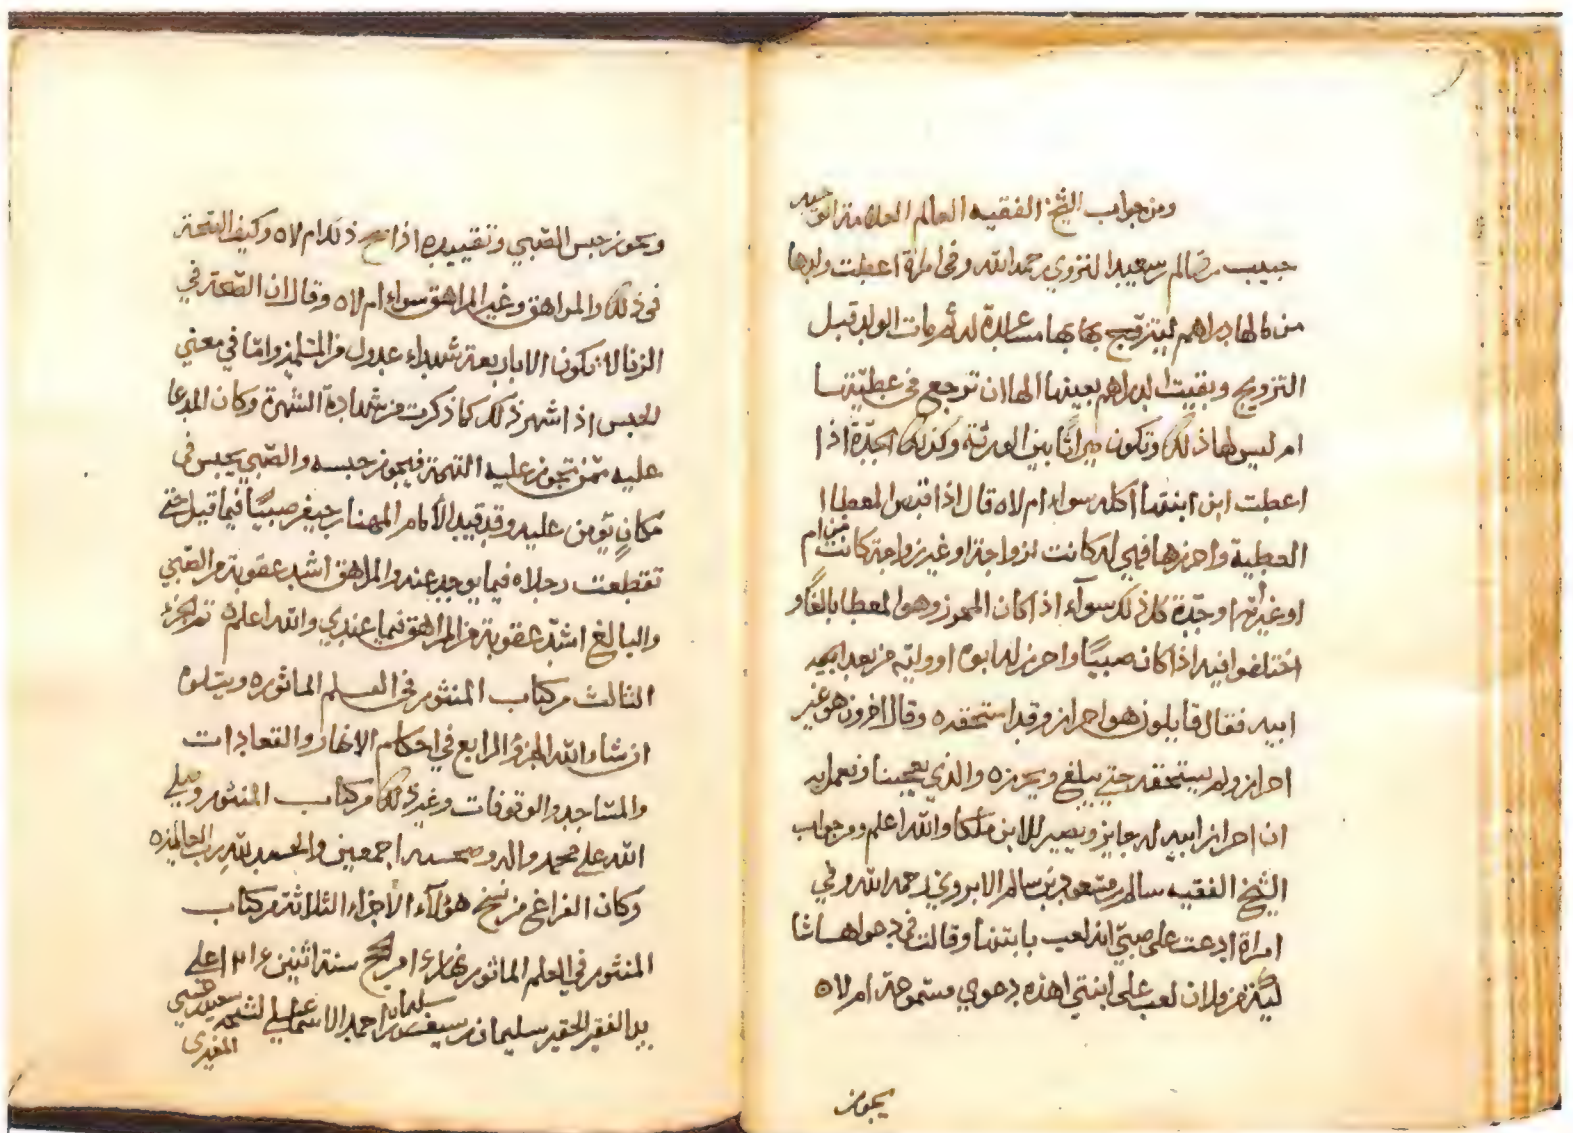 ومن جواب الشيخ الفقيه العالم العلامة
حبيب بن سالم بن سعيد النزوي رحمه الله وفي امراة اعطت ولدها
من مالها دراهم ليتزوج بها بها مساعدة له ثم مات الولد قبل
التزويج وبقيت الدراهم بعينها الها ان ترجع في عطيتها
ام ليس لها ذلك وتكون ميراثا بين الورثة وكذلك الجدة اذا
اعطت ابن ابنتها اكله سواء ام لا ه قال اذا قبض المعطا
العطية واحرزها فهي له كانت لزواجة او غير زواجة كانت من ام
او غير ام او جدة كل ذلك سوآء اذا كان المحوز وهو المعطا بالغا و
اختلفوا فيه اذا كان صبيا واحرز له ابوه او وليه من بعد
ابيه فقال قايلون هو احراز وقد استحقه ه وقال اخرون هو غير
احراز ولم يستحقه حتى يبلغ ويحرزه والذي يعجبنا ونعمل به
ان احراز ابيه له جايز ويصير للابن ملكا والله اعلم ومن جواب
الشيخ الفقيه سالم بن مسعود بن سالم الابروي رحمه الله وفي
امراة ادعت على صبي انه لعب بابنتها وقالت في دعواها
فلان لعب على ابنتي اهذه دعوى مسموعة ام لا ه
يجوز
ويجوز حبس الصبي وتقييده اذا صح ذلك ام لا ه وكيف الصحة
في ذلك والمراهق وغير المراهق سواء ام لا ه وقال ان الصحة في
الزنا لا تكون الا باربعة شهداء عدول من المسلمين واما في معنى
الحبس اذا اشهر ذلك كما ذكرت من شهادة الشهرة وكان المدعا
عليه ممن تجوز عليه التهمة فيجوز حبسه والصبي يحبس في
مكان يؤمن عليه وقد قيد الأمام المهنا بن جيفر صبيا فيما قيل حتى
تقطعت رجلاه فيما يوجد عنه والمراهق اشد عقوبة من الصبي
والبالغ اشد عقوبة من المراهق فيما عندي والله اعلم ه تم الجزء
الثالث من كتاب المنثور في العلم الماثور ه ويتلوه
ان شاء الله الجزؤ الرابع في احكام الانهار والقعادات
والمساجد والوقوفات وغير ذلك من كتاب المنثور وصلى
الله على محمد واله وصحبه اجمعين والحمد لله رب العالمين ه
وكان الفراغ من نسخ هؤلآء الأجزاء الثلاثة من كتاب
المنثور في العلم الماثور نهار سنة اثنين على
يد الفقير الحقير سليمان بن سيف بن سليمان بن احمد الاسماعيلي
المغيري